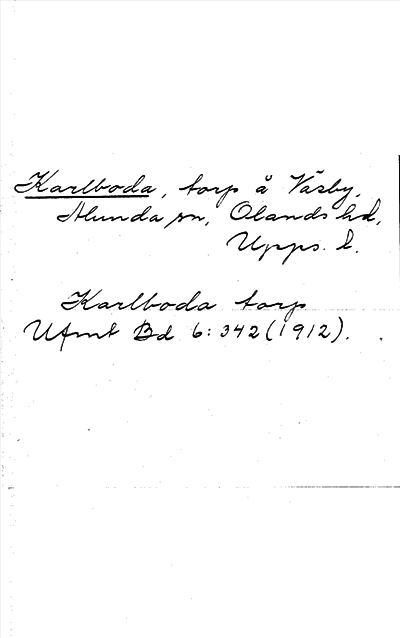 Karlboda, torp å Väsby,
Alunda sn, Olands hd,
Upps. l.
Karlboda torp
Ufmt Bd 6:342 (1912).